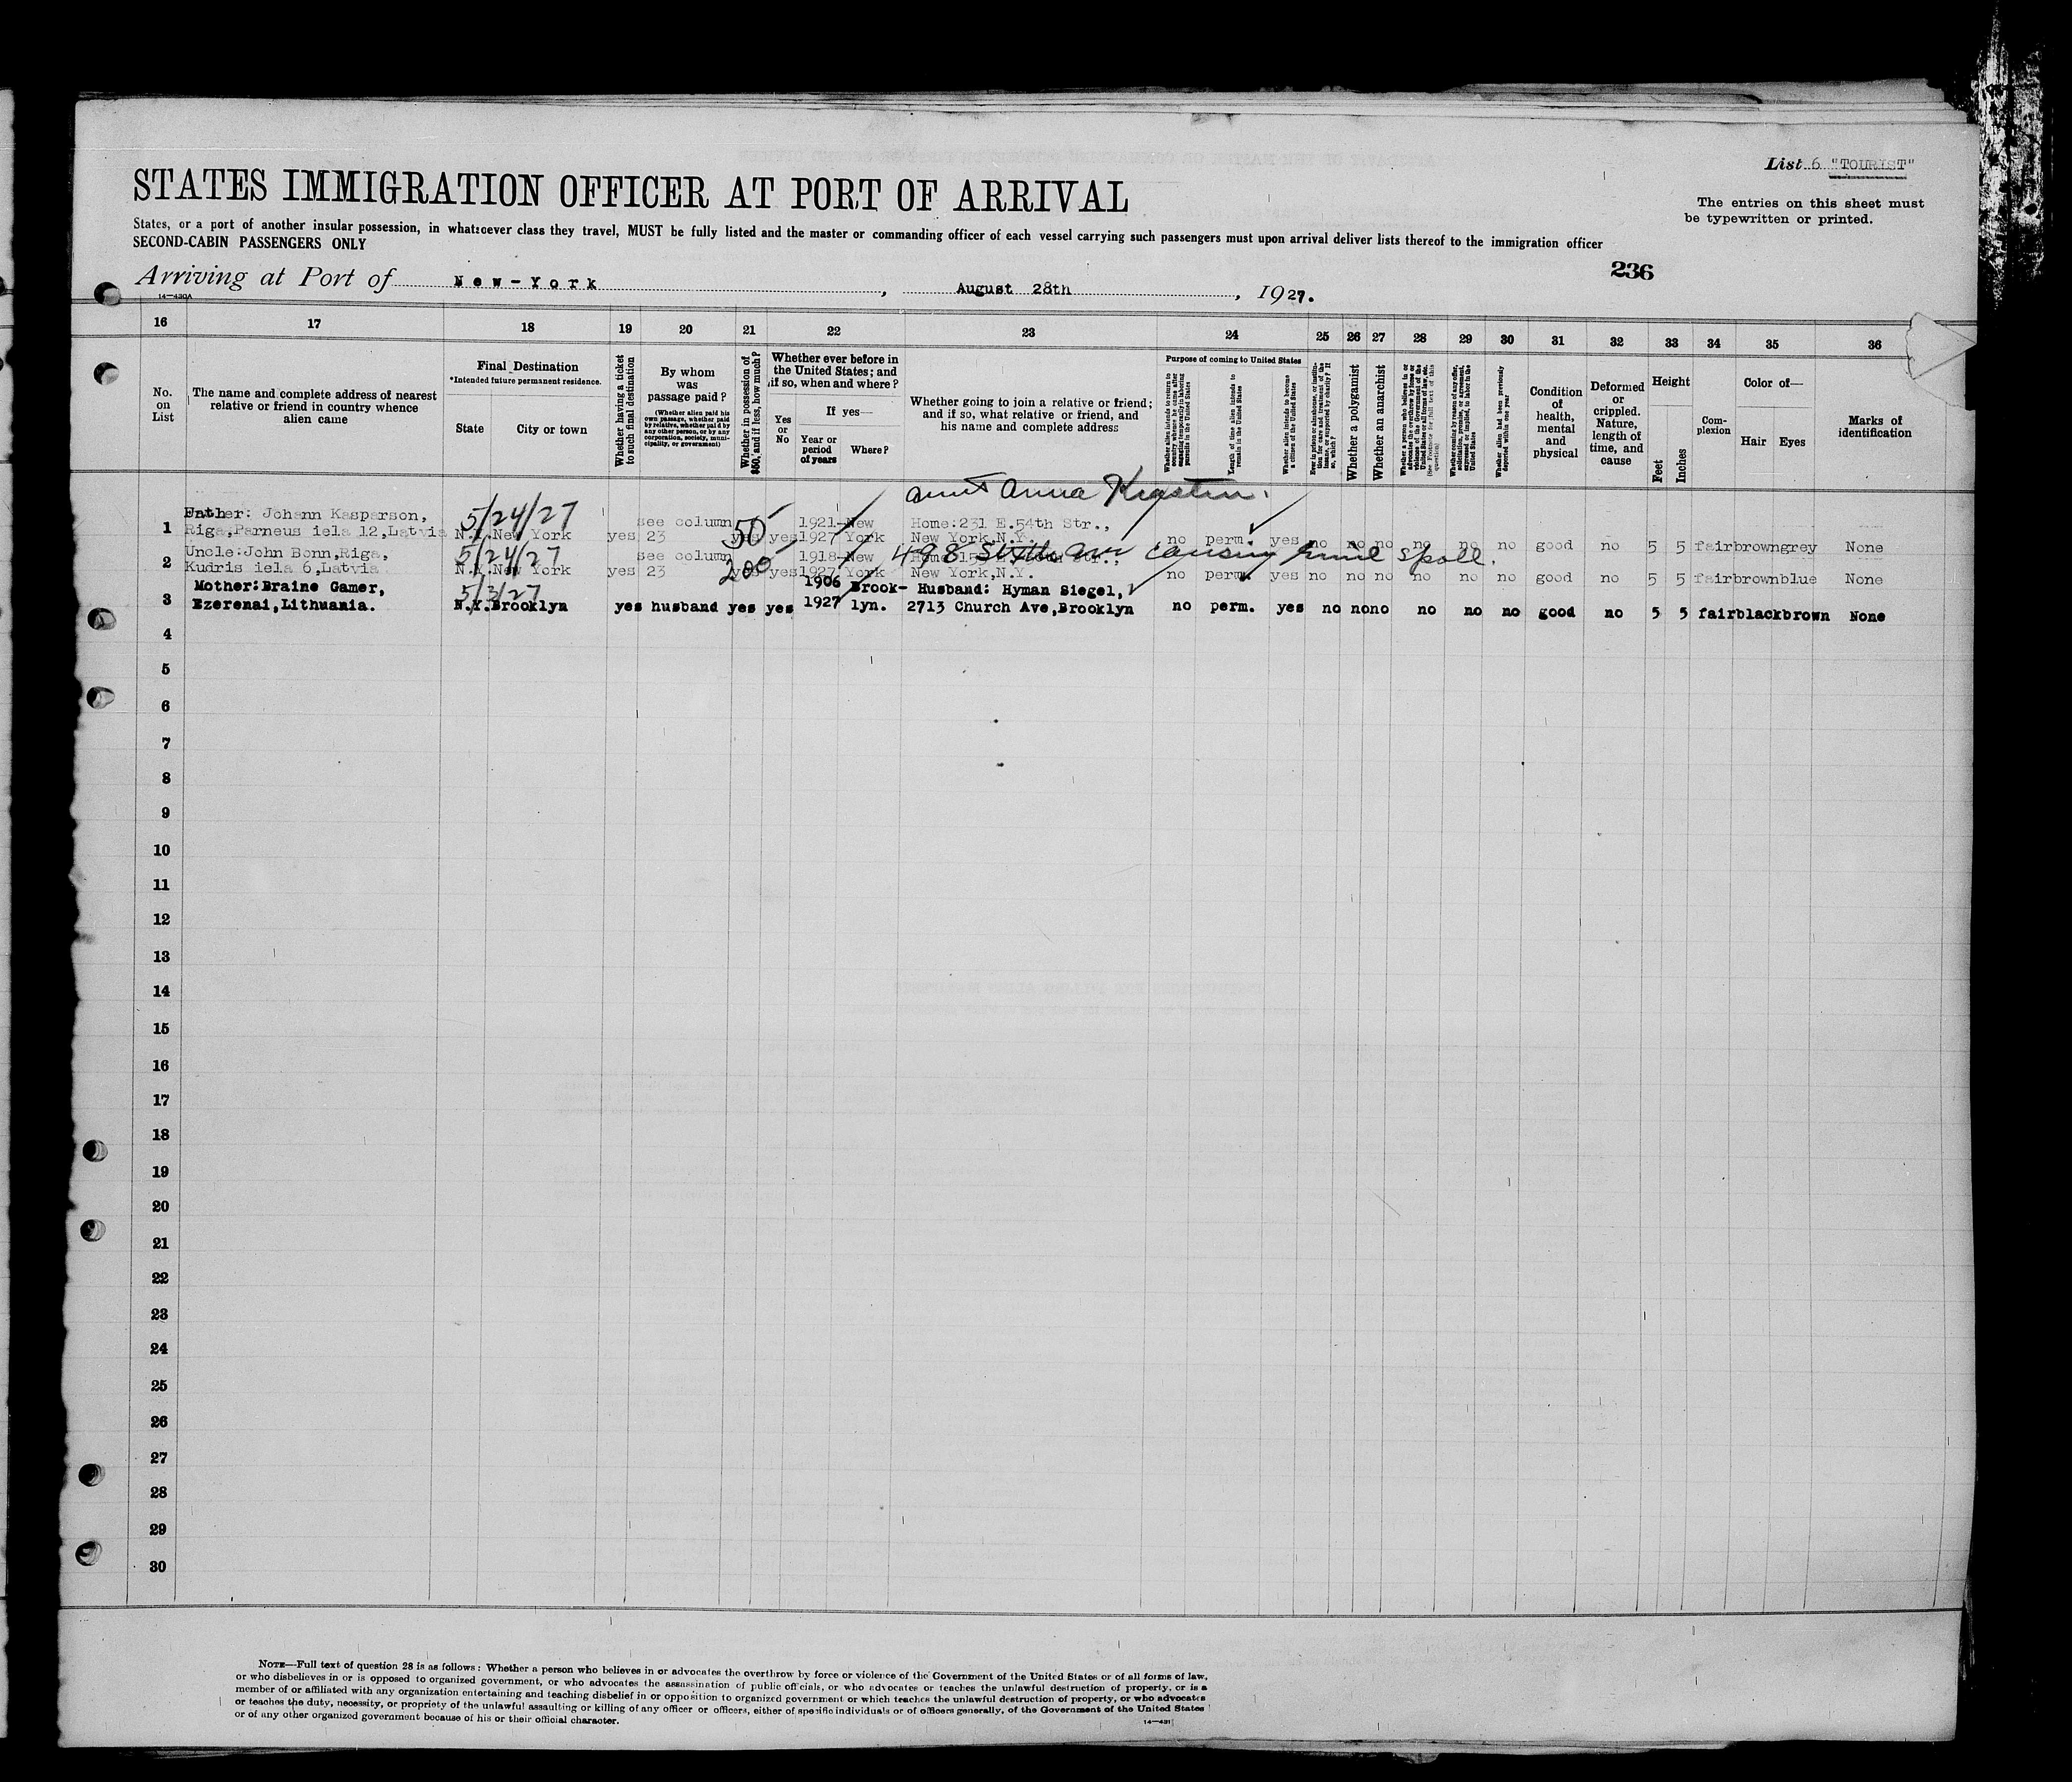 List 6 "TOURIST"
STATES IMMIGRATION OFFICER AT PORT OF ARRIVAL
The entries on this sheet must
be typewritten or printed.
States, or a port of another insular possession, in whatsoever class they travel, MUST be fully listed and the master or commanding officer of each vessel carrying such passengers must upon arrival deliver lists thereof to the immigration officer
SECOND-CABIN PASSENGERS ONLY
236
Arriving at Port of New-York, August 28th, 1927.
14-430A
16 17 18 19 20 21 22 23 24 25 26 27 28 29 30 31 32 33 34 35 36
No. on List
The name and complete address of nearest relative or friend in country whence alien came
Final Destination
*Intended future permanent residence.
State
City or town
Whether having a ticket to such final destination
By whom was passage paid?
(Whether alien paid his own passage, whether paid by relative, whether paid by any other person, or by any corporation, society, municipality, or government)
Whether in possession of $50, and if less, how much?
Whether ever before in the United States; and if so, when and where?
Yes or No
If yes—
Year or period of years
Where?
Whether going to join a relative or friend; and if so, what relative or friend, and his name and complete address
Purpose of coming to United States
Whether alien intends to return to country whence he came after engaging temporarily in laboring pursuits in the United States
Length of time alien intends to remain in the United States
Whether alien intends to become a citizen of the United States
Ever in prison or almshouse, or institution for care and treatment of the insane, or supported by charity? If so, which?
Whether a polygamist
Whether an anarchist
Whether a person who believes in or advocates the overthrow by force or violence of the Government of the United States or all forms of law, etc. (See Footnote for full text of this question)
Whether coming by reason of any offer, solicitation, promise, or agreement, expressed or implied, to labor in the United States
Whether alien had been previously deported within one year
Condition of health, mental and physical
Deformed or crippled. Nature, length of time, and cause
Height
Feet
Inches
Complexion
Color of—
Hair Eyes
Marks of identification
aunt Anna
Father: Johann Kasparson, 5/24/27 see column 50 1921- New Home:231 E.54th Str.,
1 Riga,Parneus iela 12,Latvia N.Y. New York yes 23 yes yes 1927 York New York,N.Y. no perm. yes no no no no no no good no 5 5 fair brown grey None
Uncle:John Bonn,Riga, 5/24/27 see column 200 1918- New 498
2 Kudris iela 6,Latvia N.Y. New York yes 23 yes yes 1927 York New York,N.Y. no perm. yes no no no no no no good no 5 5 fair brown blue None
Mother:Braine Gamer, 5/3/27 1906 Brook- Husband: Hyman Siegel,
3 Ezerenai,Lithuania. N.Y. Brooklyn yes husband yes yes 1927 lyn. 2713 Church Ave,Brooklyn no perm. yes no no no no no no good no 5 5 fair black brown None
4
5
6
7
8
9
10
11
12
13
14
15
16
17
18
19
20
21
22
23
24
25
26
27
28
29
30
NOTE—Full text of question 28 is as follows: Whether a person who believes in or advocates the overthrow by force or violence of the Government of the United States or of all forms of law,
or who disbelieves in or is opposed to organized government, or who advocates the assassination of public officials, or who advocates or teaches the unlawful destruction of property, or is a
member of or affiliated with any organization entertaining and teaching disbelief in or opposition to organized government or which teaches the unlawful destruction of property, or who advocates
or teaches the duty, necessity, or propriety of the unlawful assaulting or killing of any officer or officers, either of specific individuals or of officers generally, of the Government of the United States
or of any other organized government because of his or their official character.
14-431